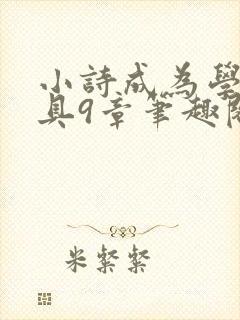 小詩成為學
具9章筆趣閱
米粲粲